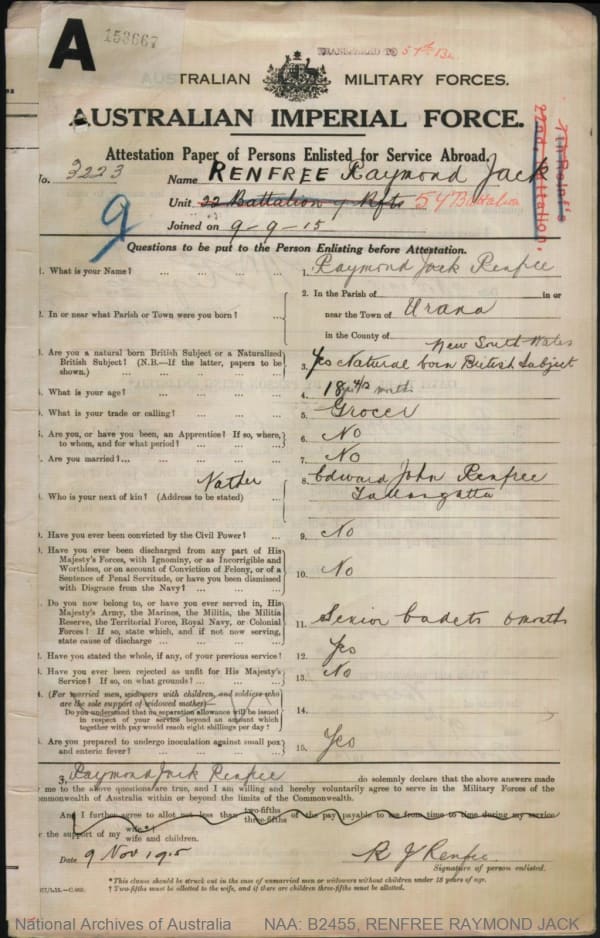 A
153667
TRANSFERRED TO 54th Bn
AUSTRALIAN MILITARY FORCES.
AUSTRALIAN IMPERIAL FORCE.
Attestation Paper of Persons Enlisted for Service Abroad.
No. 3223 Name RENFREE Raymond Jack
Unit 22 Battalion 7 Rfts 54 Battalion
Joined on 9-9-15
22nd Battalion.
7th Reinf's
9
Questions to be put to the Person Enlisting before Attestation.
1. What is your Name? ... ... ... ... 1. Raymond Jack Renfree
2. In or near what Parish or Town were you born? ... 2. In the Parish of in or
near the Town of Urana
in the County of New South Wales
3. Are you a natural born British Subject or a Naturalized
British Subject? (N.B.—If the latter, papers to be
shown.) ... ... ... ... 3. Yes Natural born British Subject
What is your age? ... ... ... ... 4. 18 4/12 months
What is your trade or calling? ... ... ... 5. Grocer
Are you, or have you been, an Apprentice? If so, where,
to whom, and for what period? ... ... 6. No
Are you married?... ... ... ... 7. No
Father
Who is your next of kin? (Address to be stated) ... 8. Edward John Renfree
Tallangatta
Have you ever been convicted by the Civil Power? ... 9. No
Have you ever been discharged from any part of His
Majesty's Forces, with Ignominy, or as Incorrigible and
Worthless, or on account of Conviction of Felony, or of a
Sentence of Penal Servitude, or have you been dismissed
with Disgrace from the Navy? ... ... 10. No
Do you now belong to, or have you ever served in, His
Majesty's Army, the Marines, the Militia, the Militia
Reserve, the Territorial Force, Royal Navy, or Colonial
Forces? If so, state which, and if not now serving,
state cause of discharge ... ... ... 11. Senior Cadets 6 months
Have you stated the whole, if any, of your previous service? 12. Yes
Have you ever been rejected as unfit for His Majesty's
Service? If so, on what grounds? ... ... 13. No
(For married men, widowers with children, and soldiers who
are the sole support of widowed mother)—
Do you understand that no separation allowance will be issued
in respect of your service beyond an amount which
together with pay would reach eight shillings per day? 14.
Are you prepared to undergo inoculation against small pox
and enteric fever? ... ... ... 15. Yes
I, Raymond Jack Renfree do solemnly declare that the above answers made
by me to the above questions are true, and I am willing and hereby voluntarily agree to serve in the Military Forces of the
Commonwealth of Australia within or beyond the limits of the Commonwealth.
And I further agree to allot not less than two-fifths three-fifths of the pay payable to me from time to time during my service
for the support of my wife* wife and children.
Date 9 Nov 1915 R J Renfree
Signature of person enlisted.
*This clause should be struck out in the case of unmarried men or widowers without children under 18 years of age.
† Two-fifths must be allotted to the wife, and if there are children three-fifths must be allotted.
National Archives of Australia NAA: B2455, RENFREE RAYMOND JACK